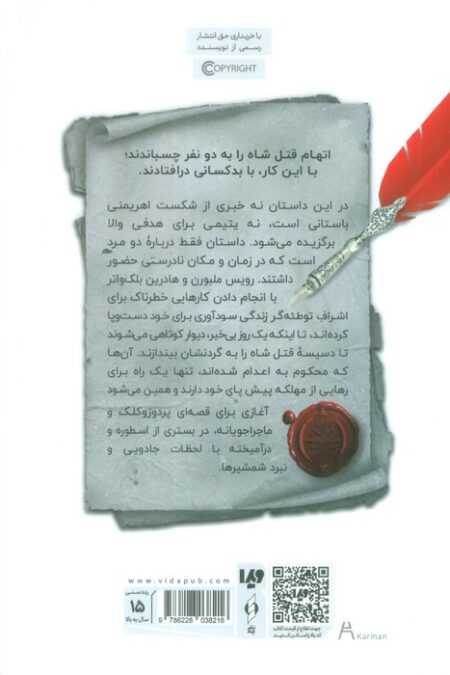 با خریداری حق انتشار
رسمی از نویسنده
COPYRIGHT
اتهام قتل شاه را به دو نفر چسباندند؛
با این کار، با بدکسانی درافتادند.
در این داستان نه خبری از شکست اهریمنی
باستانی است، نه یتیمی برای هدفی والا
برگزیده می‌شود. داستان فقط دربارهٔ دو مرد
است که در زمان و مکان نادرستی حضور
داشتند. رویس ملبورن و هادرین بلک‌واتر
با انجام دادن کارهایی خطرناک برای
اشراف توطئه‌گر زندگی سودآوری برای خود دست‌وپا
کرده‌اند، تا اینکه یک روز بی‌خبر، دیوار کوتاهی می‌شوند
تا دسیسهٔ قتل شاه را به گردنشان بیندازند. آن‌ها
که محکوم به اعدام شده‌اند، تنها یک راه برای
رهایی از مهلکه پیش پای خود دارند و همین می‌شود
آغازی برای قصه‌ای پردوزوکلک و
ماجراجویانه، در بستری از اسطوره و
درآمیخته با لحظات جادویی و
نبرد شمشیرها.
www.vidapub.com
رده سنی
۱۵
سال به بالا
9 786228 038216
ویدا
جهت اطلاع از قیمت کتاب
کد بالا را اسکن کنید.
Karman